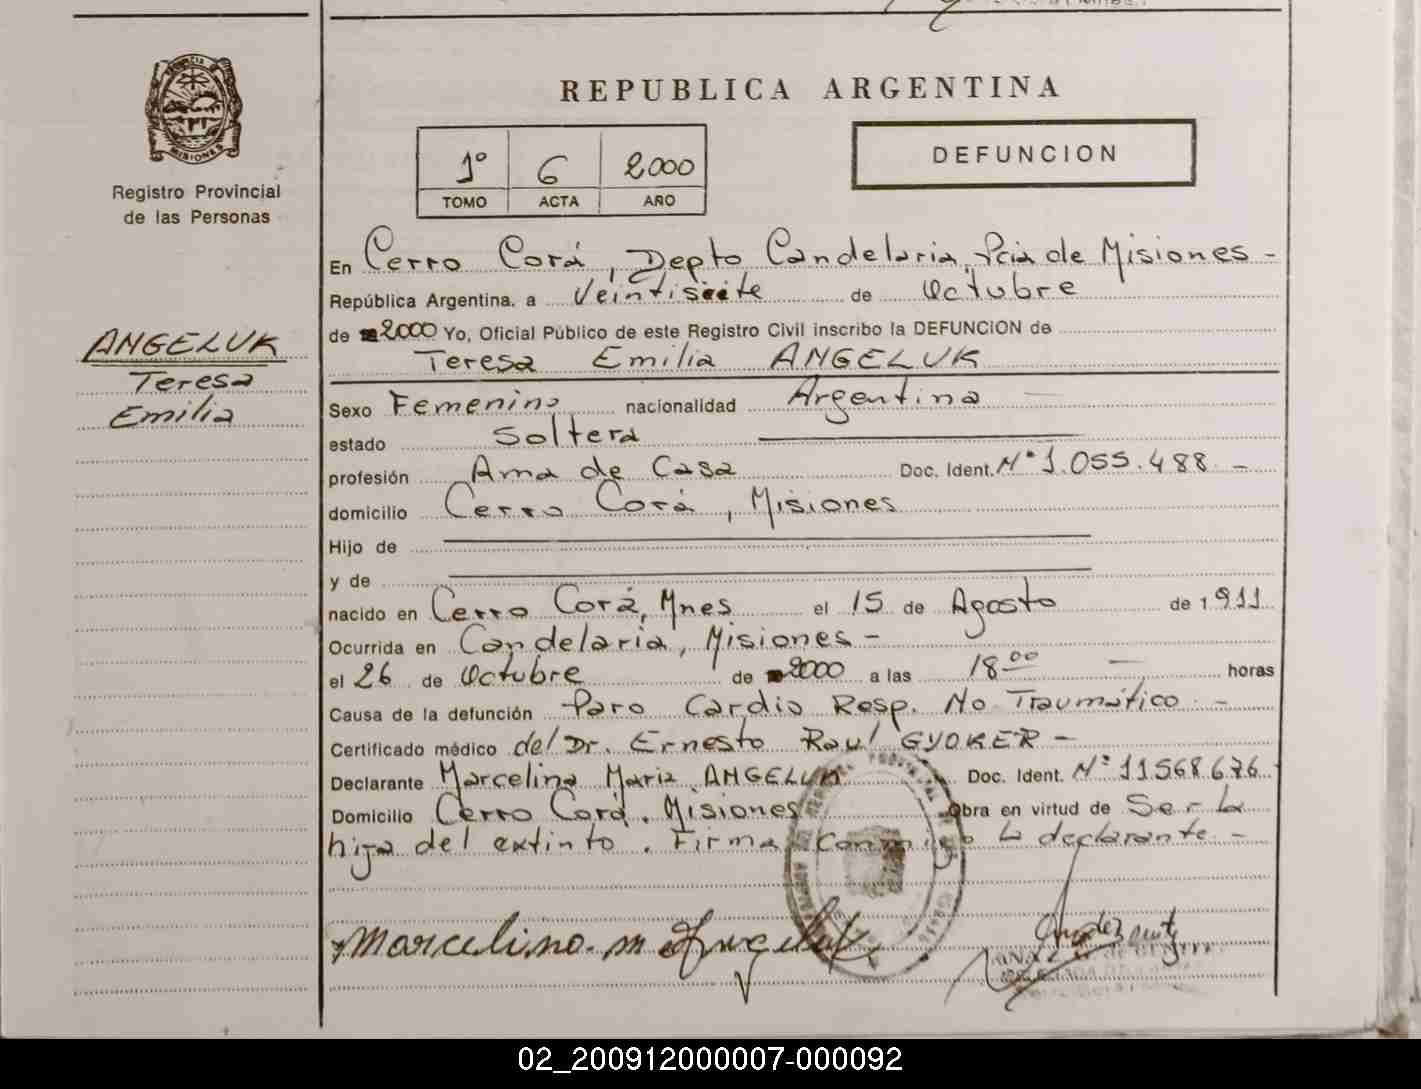 REPUBLICA ARGENTINA
PROVINCIA DE
MISIONES
Registro Provincial
de las Personas
1º 6 2000
TOMO ACTA AÑO
DEFUNCION
En Cerro Corá, Depto Candelaria, Pcia de Misiones -
República Argentina, a Veintisiete de Octubre
de 2000 Yo, Oficial Público de este Registro Civil inscribo la DEFUNCION de
Teresa Emilia ANGELUK
ANGELUK
Teresa
Emilia
Sexo Femenino nacionalidad Argentina
estado Soltera
profesión Ama de Casa Doc. Ident. Nº 1.055.488 -
domicilio Cerro Corá, Misiones
Hijo de
y de
nacido en Cerro Corá, Mnes el 15 de Agosto de 1911
Ocurrida en Candelaria, Misiones -
el 26 de Octubre de 2000 a las 18 00 - horas
Causa de la defunción Paro Cardio Resp. No Traumático -
Certificado médico del Dr. Ernesto Raul GYOKER -
Declarante Marcelina Maria ANGELUK Doc. Ident. Nº 11568.676
Domicilio Cerro Corá, Misiones Obra en virtud de Ser la
hija del extinto. Firma conmigo la declarante -
Marcelina m Angeluk
02_200912000007-000092